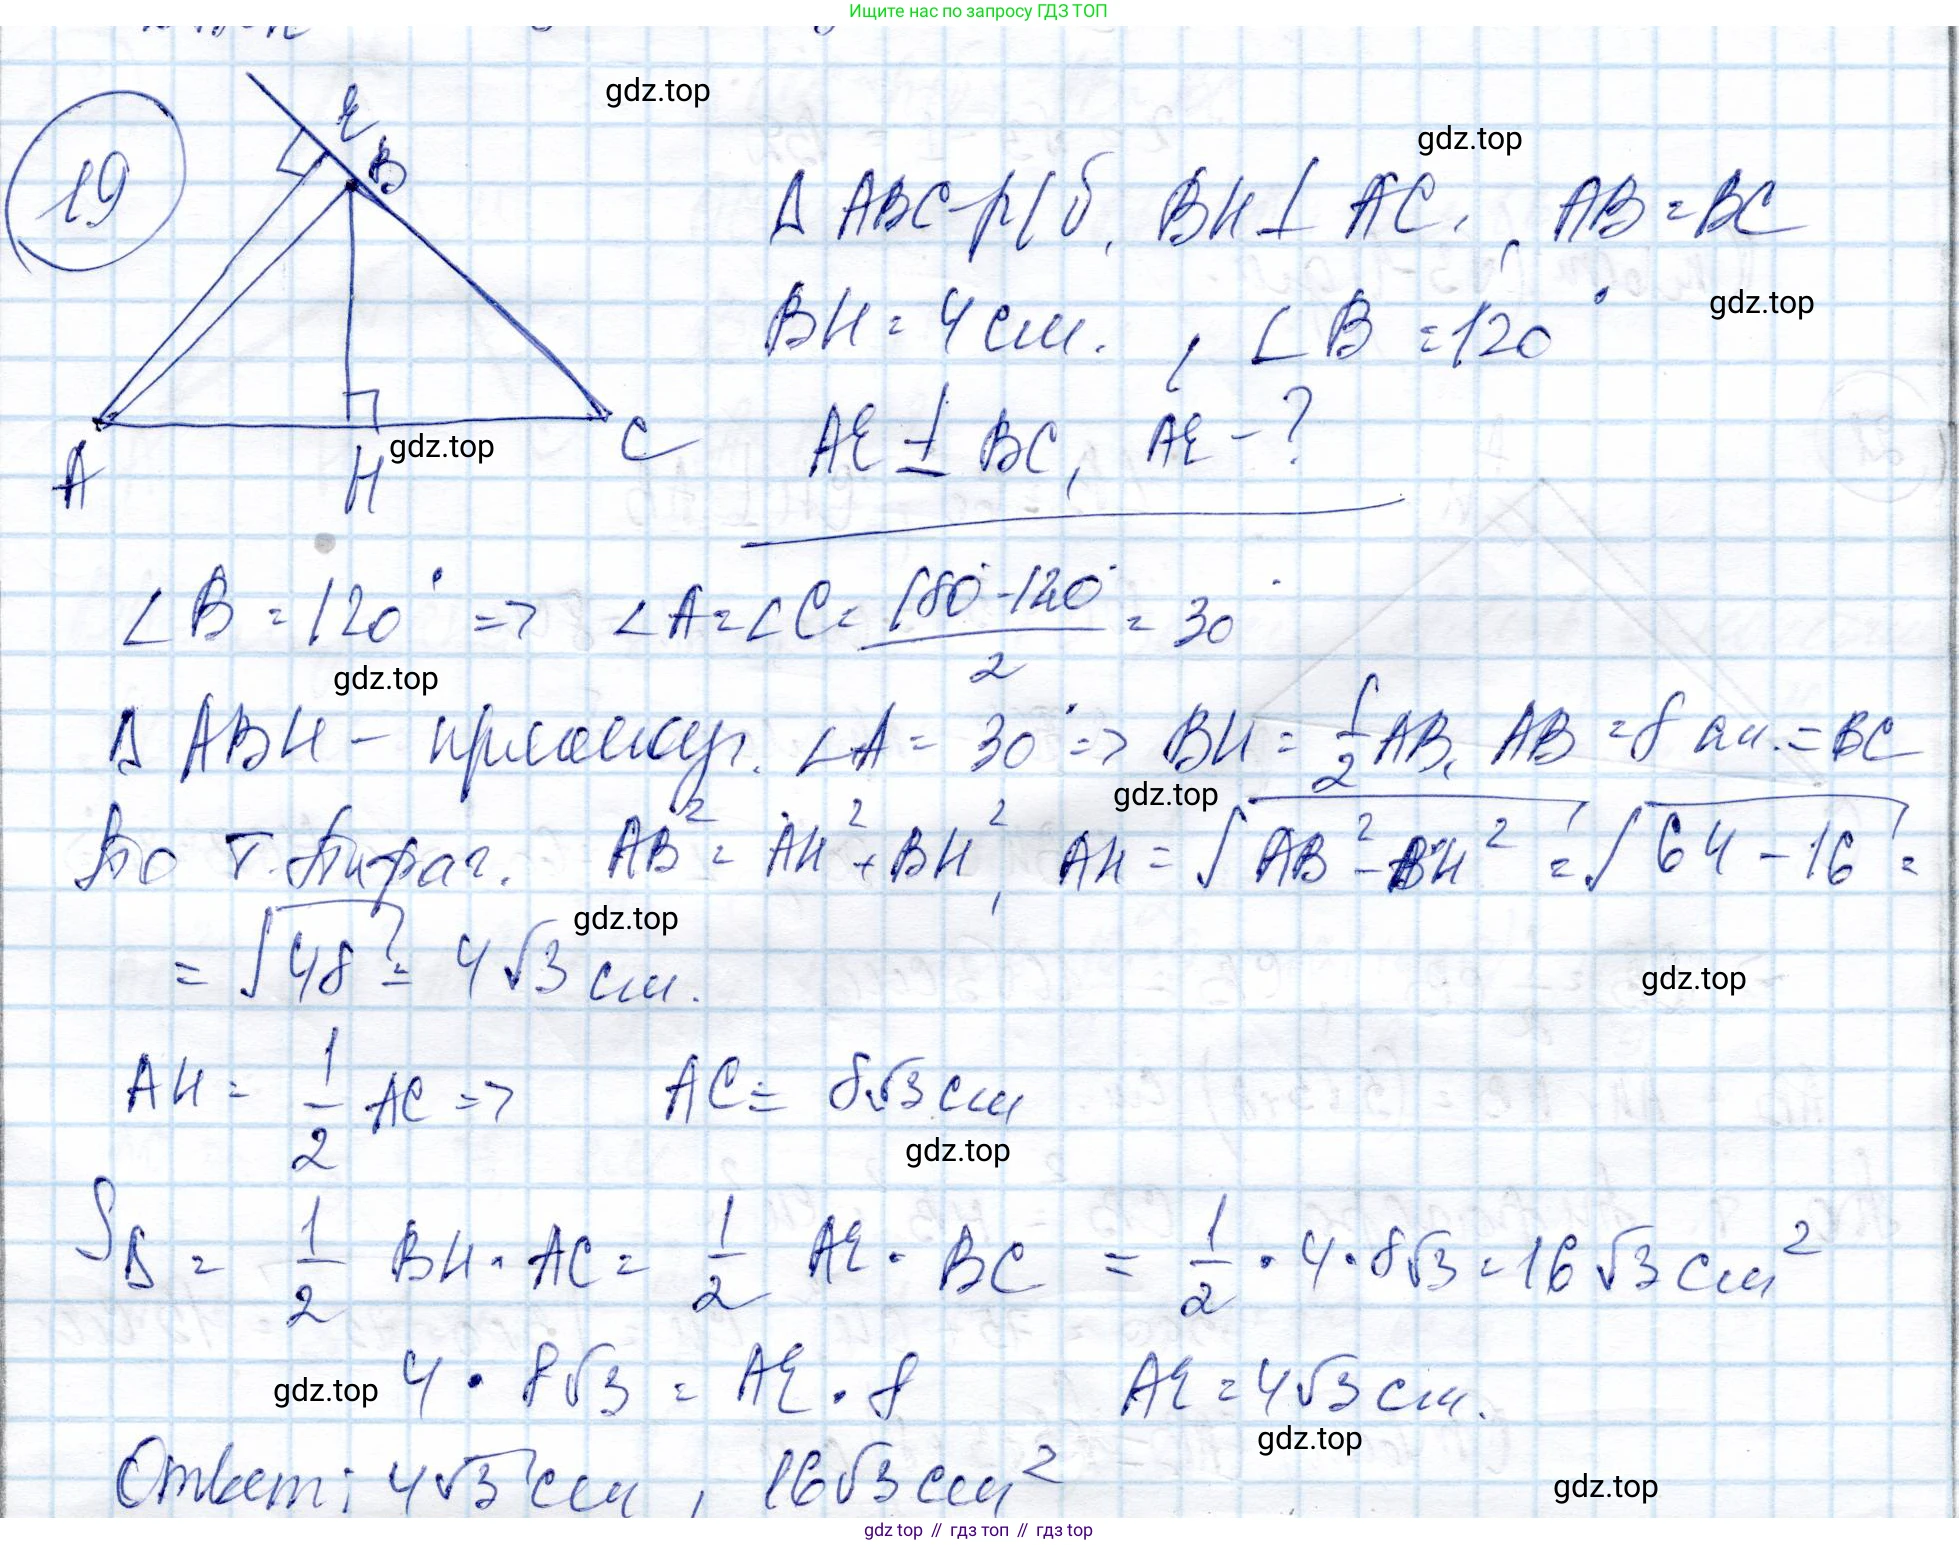 Ищите нас по запросу ГДЗ ТОП
gdz.top
19
E
B
A
H
C
gdz.top
Δ ABC - р/б, BH ⊥ AC, AB = BC
gdz.top
BH = 4 см., ∠B = 120°
gdz.top
AE ⊥ BC, AE - ?
gdz.top
∠B = 120° => ∠A = ∠C = (180° - 120°)/2 = 30°
gdz.top
Δ ABH - прямоуг. ∠A = 30° => BH = 1/2 AB, AB = 8 см. = BC
gdz.top
По т. Пифаг. AB² = AH² + BH², AH = √(AB² - BH²) = √(64 - 16) =
gdz.top
= √48 = 4√3 см.
gdz.top
AH = 1/2 AC => AC = 8√3 см
gdz.top
SΔ = 1/2 BH · AC = 1/2 AE · BC = 1/2 · 4 · 8√3 = 16√3 см²
gdz.top
4 · 8√3 = AE · 8 AE = 4√3 см.
gdz.top
Ответ: 4√3 см, 16√3 см²
gdz.top
gdz top // гдз топ // гдз top